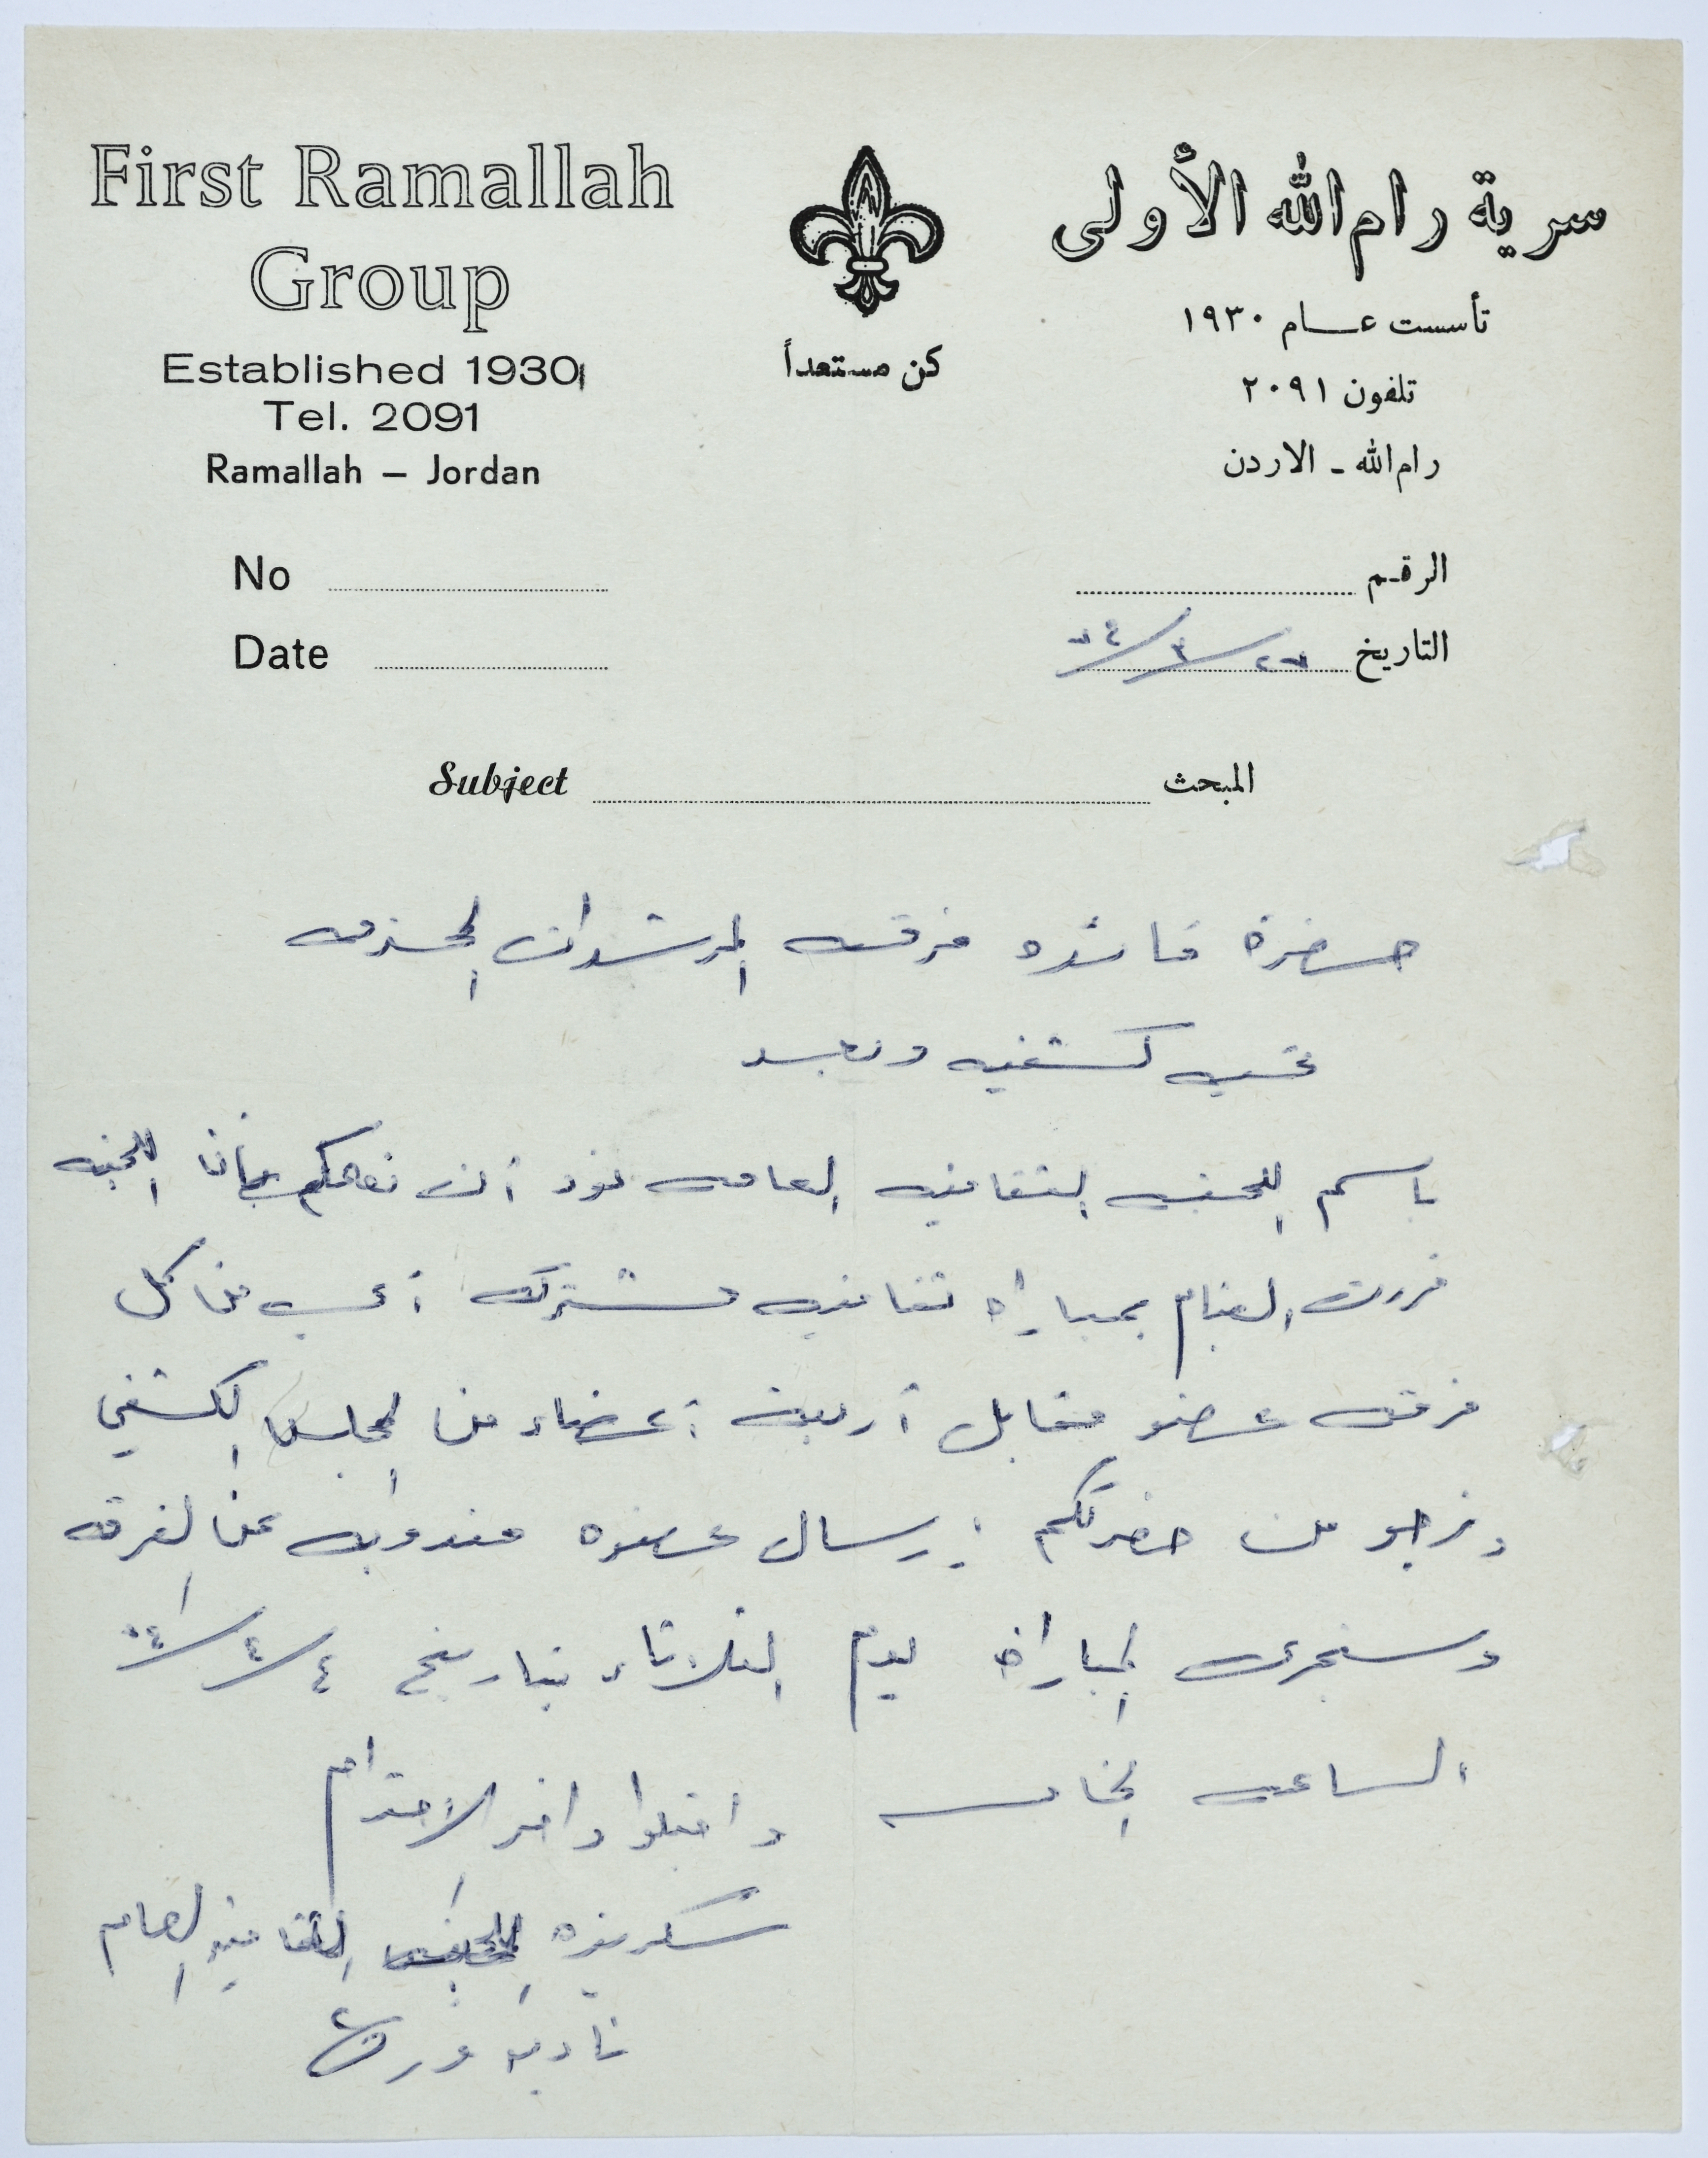 First Ramallah
Group
Established 1930
Tel. 2091
Ramallah – Jordan
كن مستعداً
سرية رام الله الأولى
تأسست عام ١٩٣٠
تلفون ٢٠٩١
رام الله - الاردن
No
Date
الرقم
التاريخ
Subject المبحث
حضرة قائده فرقه المرشدات المحترمه
تحيه كشفيه وبعد
باسم اللجنه الثقافيه العامه نود أن نعلمكم بأن اللجنه
قررت القيام بمباراه ثقافيه مشتركه أي من كل
فرقه عضو مقابل أربعة أعضاء من المجلس الكشفي
ونرجو من حضرتكم إرسال عضوه مندوبه عن الفرقه
وستجرى المباراة يوم الثلاثاء بتاريخ ٤/٤
الساعه الخامسه
واقبلوا وافر الاحترام
سكرتيره اللجنه الثقافيه العامه
ناديه